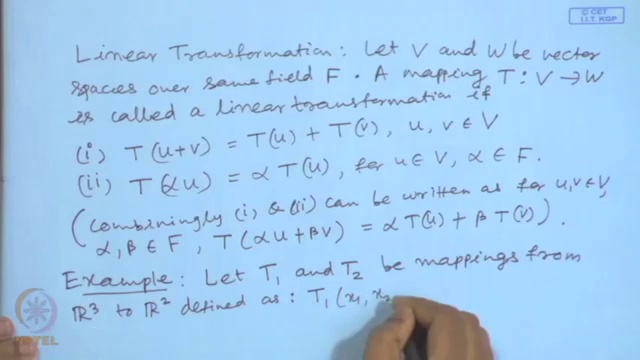 © CET
I.I.T. KGP
Linear Transformation: Let V and W be vector
spaces over same field F. A mapping T: V → W
is called a linear transformation if
(i) T(u+v) = T(u) + T(v), u, v ∈ V
(ii) T(αu) = α T(u), for u ∈ V, α ∈ F.
(Combiningly (i) & (ii) can be written as for u, v ∈ V,
α, β ∈ F, T(αu + βv) = α T(u) + β T(v)).
Example: Let T₁ and T₂ be mappings from
ℝ³ to ℝ² defined as: T₁(x₁, x₂
NPTEL